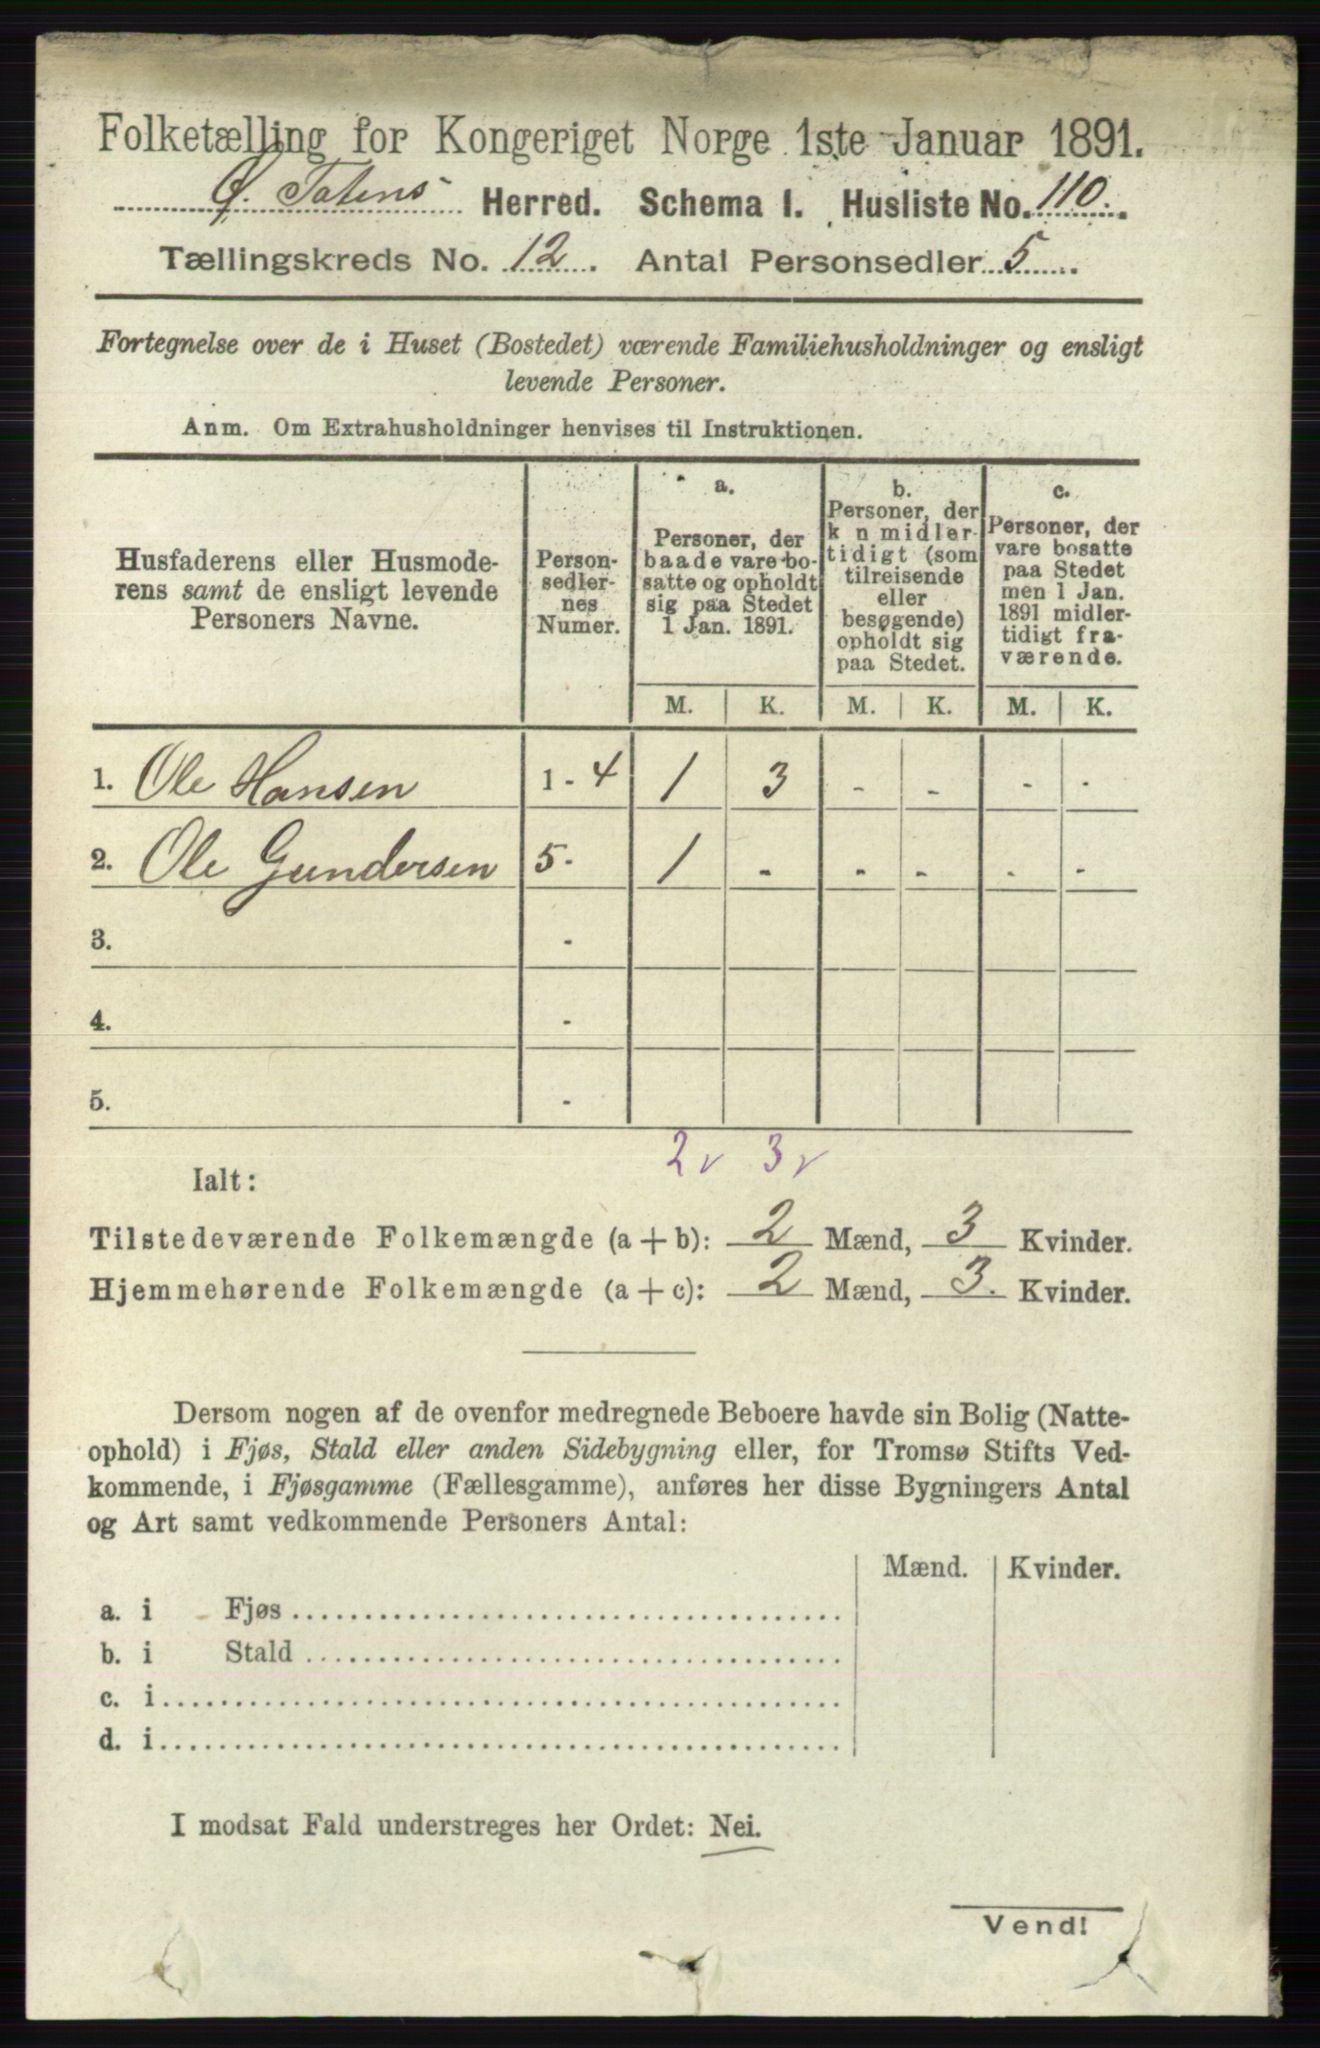 Folketælling for Kongeriget Norge 1ste Januar 1891.
Ø. Totens Herred. Schema I. Husliste No. 110.
Tællingskreds No. 12. Antal Personsedler 5.
Fortegnelse over de i Huset (Bostedet) værende Familiehusholdninger og ensligt
levende Personer.
Anm. Om Extrahusholdninger henvises til Instruktionen.
Husfaderens eller Husmode-
rens samt de ensligt levende
Personers Navne.
Person-
sedler-
nes
Numer.
a.
Personer, der
baade vare bo-
satte og opholdt
sig paa Stedet
1 Jan. 1891.
b.
Personer, der
k n midler-
tidigt (som
tilreisende
eller
besøgende)
opholdt sig
paa Stedet.
c.
Personer, der
vare bosatte
paa Stedet
men 1 Jan.
1891 midler-
tidigt fra-
værende.
M. K. M. K. M. K.
1. Ole Hansen 1 - 4 1 3 - - - -
2. Ole Gundersen 5 - 1 - - - - -
3. -
4. -
5. -
2 v 3 v
Ialt:
Tilstedeværende Folkemængde (a + b): 2 Mænd, 3 Kvinder.
Hjemmehørende Folkemængde (a + c): 2 Mænd, 3. Kvinder.
Dersom nogen af de ovenfor medregnede Beboere havde sin Bolig (Natte-
ophold) i Fjøs, Stald eller anden Sidebygning eller, for Tromsø Stifts Ved-
kommende, i Fjøsgamme (Fællesgamme), anføres her disse Bygningers Antal
og Art samt vedkommende Personers Antal:
Mænd. Kvinder.
a. i Fjøs
b. i Stald
c. i
d. i
I modsat Fald understreges her Ordet: Nei.
Vend!